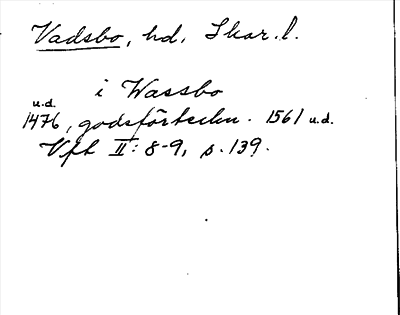 Vadsbo, hd, Skar. l.
i Wassbo
u.d.
1476, godsförteckn. 1561 u.d.
Vft II: 8-9, s. 139.